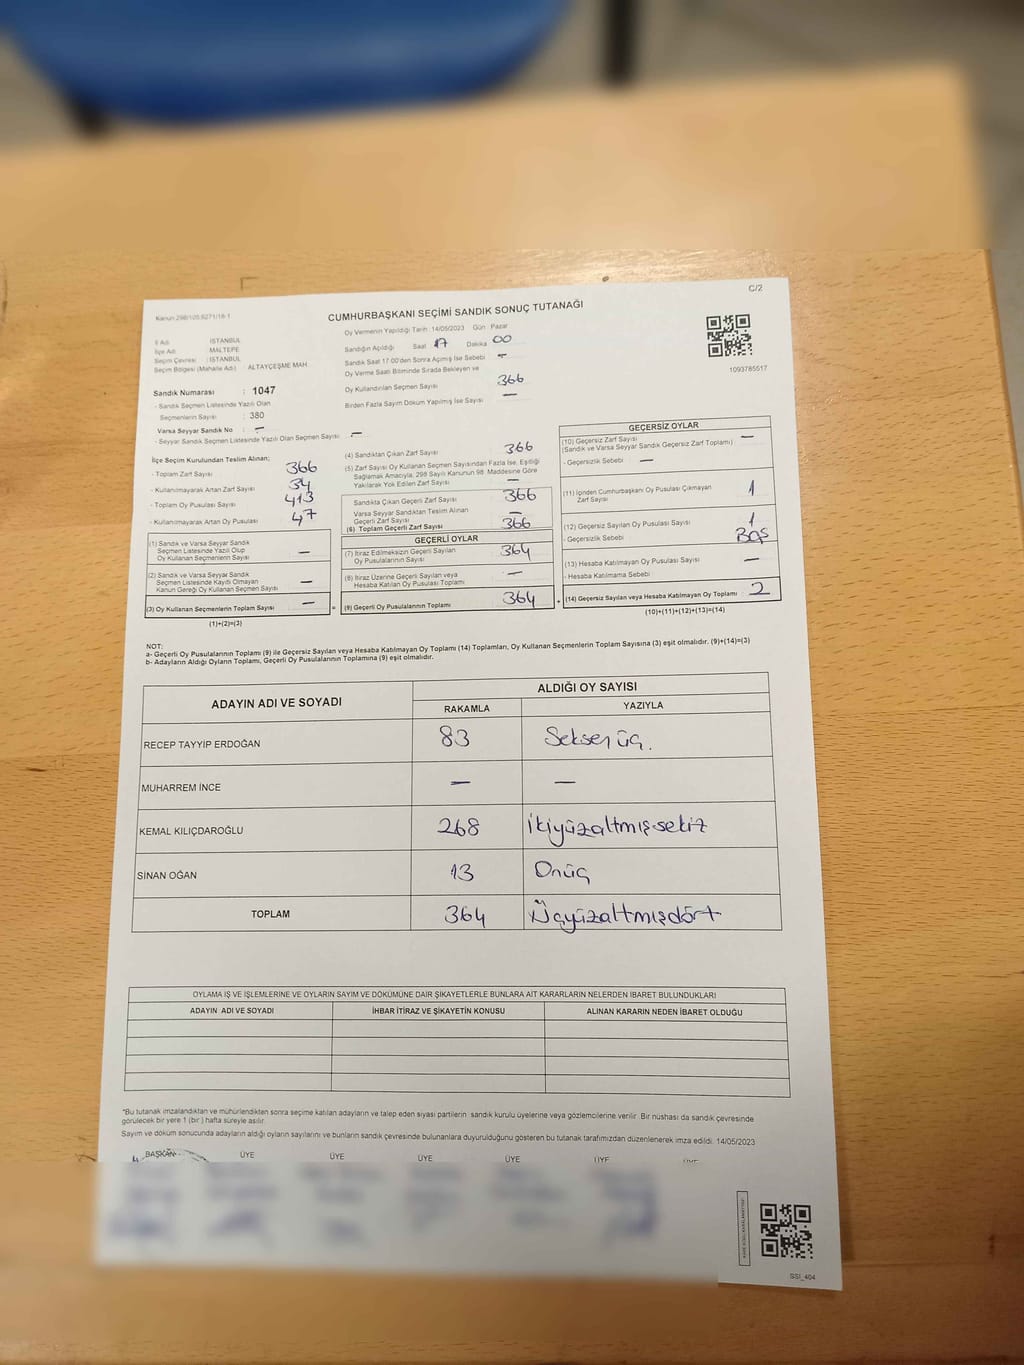 C/2
Kanun 298/105,6271/18-1
CUMHURBAŞKANI SEÇİMİ SANDIK SONUÇ TUTANAĞI
Oy Vermenin Yapıldığı Tarih :14/05/2023 Gün : Pazar
İl Adı : İSTANBUL
İlçe Adı : MALTEPE
Seçim Çevresi : İSTANBUL
Seçim Bölgesi (Mahalle Adı) : ALTAYÇEŞME MAH.
Sandığın Açıldığı Saat 17 Dakika 00
Sandık Saat 17:00'den Sonra Açılmış İse Sebebi —
Oy Verme Saati Bitiminde Sırada Bekleyen ve
Oy Kullandırılan Seçmen Sayısı 366
Birden Fazla Sayım Döküm Yapılmış İse Sayısı —
1093785517
Sandık Numarası : 1047
- Sandık Seçmen Listesinde Yazılı Olan
Seçmenlerin Sayısı : 380
Varsa Seyyar Sandık No : —
- Seyyar Sandık Seçmen Listesinde Yazılı Olan Seçmen Sayısı : —
İlçe Seçim Kurulundan Teslim Alınan;
- Toplam Zarf Sayısı 366
- Kullanılmayarak Artan Zarf Sayısı 34
- Toplam Oy Pusulası Sayısı 413
- Kullanılmayarak Artan Oy Pusulası 47
(1) Sandık ve Varsa Seyyar Sandık
Seçmen Listesinde Yazılı Olup
Oy Kullanan Seçmenlerin Sayısı —
(2) Sandık ve Varsa Seyyar Sandık
Seçmen Listesinde Kayıtlı Olmayan
Kanun Gereği Oy Kullanan Seçmen Sayısı —
(3) Oy Kullanan Seçmenlerin Toplam Sayısı —
(1)+(2)=(3)
(4) Sandıktan Çıkan Zarf Sayısı 366
(5) Zarf Sayısı Oy Kullanan Seçmen Sayısından Fazla İse, Eşitliği
Sağlamak Amacıyla, 298 Sayılı Kanunun 98. Maddesine Göre
Yakılarak Yok Edilen Zarf Sayısı —
Sandıkta Çıkan Geçerli Zarf Sayısı 366
Varsa Seyyar Sandıktan Teslim Alınan
Geçerli Zarf Sayısı —
(6) Toplam Geçerli Zarf Sayısı 366
GEÇERLİ OYLAR
(7) İtiraz Edilmeksizin Geçerli Sayılan
Oy Pusulalarının Sayısı 364
(8) İtiraz Üzerine Geçerli Sayılan veya
Hesaba Katılan Oy Pusulası Toplamı —
= (9) Geçerli Oy Pusulalarının Toplamı 364
GEÇERSİZ OYLAR
(10) Geçersiz Zarf Sayısı —
(Sandık ve Varsa Seyyar Sandık Geçersiz Zarf Toplamı)
- Geçersizlik Sebebi —
(11) İçinden Cumhurbaşkanı Oy Pusulası Çıkmayan
Zarf Sayısı 1
(12) Geçersiz Sayılan Oy Pusulası Sayısı 1
- Geçersizlik Sebebi Boş
(13) Hesaba Katılmayan Oy Pusulası Sayısı —
- Hesaba Katılmama Sebebi
+ (14) Geçersiz Sayılan veya Hesaba Katılmayan Oy Toplamı 2
(10)+(11)+(12)+(13)=(14)
NOT:
a- Geçerli Oy Pusulalarının Toplamı (9) ile Geçersiz Sayılan veya Hesaba Katılmayan Oy Toplamı (14) Toplamları, Oy Kullanan Seçmenlerin Toplam Sayısına (3) eşit olmalıdır. (9)+(14)=(3)
b- Adayların Aldığı Oyların Toplamı, Geçerli Oy Pusulalarının Toplamına (9) eşit olmalıdır.
ADAYIN ADI VE SOYADI ALDIĞI OY SAYISI
RAKAMLA YAZIYLA
RECEP TAYYIP ERDOĞAN 83 Seksen üç.
MUHARREM İNCE — —
KEMAL KILIÇDAROĞLU 268 İkiyüzaltmışsekiz
SİNAN OĞAN 13 Onüç
TOPLAM 364 Üçyüzaltmışdört
OYLAMA İŞ VE İŞLEMLERİNE VE OYLARIN SAYIM VE DÖKÜMÜNE DAİR ŞİKAYETLERLE BUNLARA AİT KARARLARIN NELERDEN İBARET BULUNDUKLARI
ADAYIN ADI VE SOYADI İHBAR İTİRAZ VE ŞİKAYETİN KONUSU ALINAN KARARIN NEDEN İBARET OLDUĞU
*Bu tutanak imzalandıktan ve mühürlendikten sonra seçime katılan adayların ve talep eden siyasi partilerin sandık kurulu üyelerine veya gözlemcilerine verilir. Bir nüshası da sandık çevresinde
görülecek bir yere 1 (bir ) hafta süreyle asılır.
Sayım ve döküm sonucunda adayların aldığı oyların sayılarını ve bunların sandık çevresinde bulunanlara duyurulduğunu gösteren bu tutanak tarafımızdan düzenlenerek imza edildi. 14/05/2023
BAŞKAN ÜYE ÜYE ÜYE ÜYE ÜYE
SSI_404